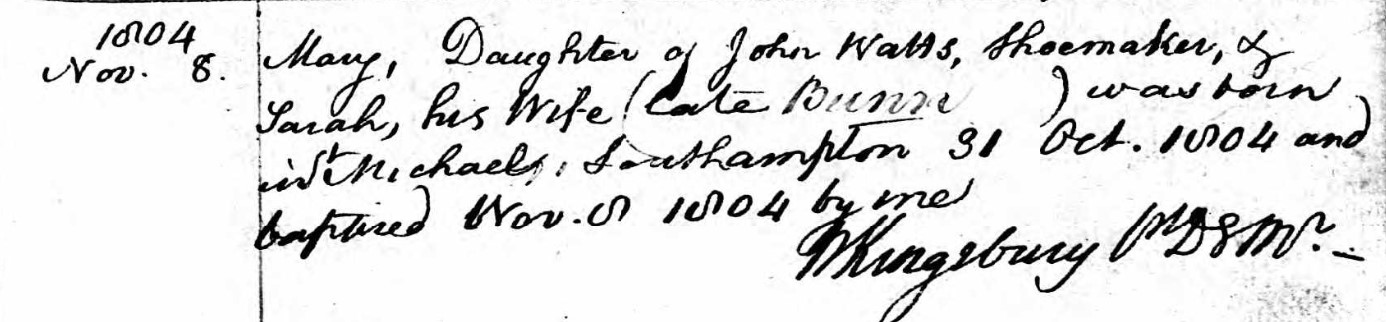 1804
Nov. 8.
Mary, Daughter of John Watts, Shoemaker, &
Sarah, his Wife (late Bunn ) was born
in St Michaels, Southampton 31 Oct. 1804 and
baptised Nov. 8 1804 by me
WKingsbury